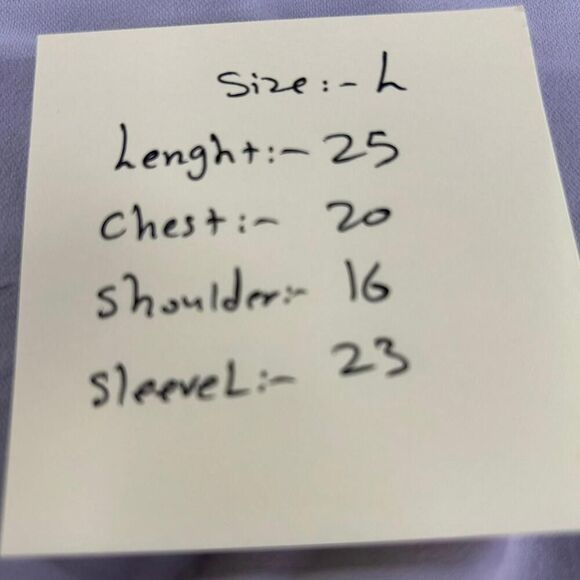 Size:- L
Lenght:- 25
Chest:- 20
Shoulder:- 16
SleeveL:- 23